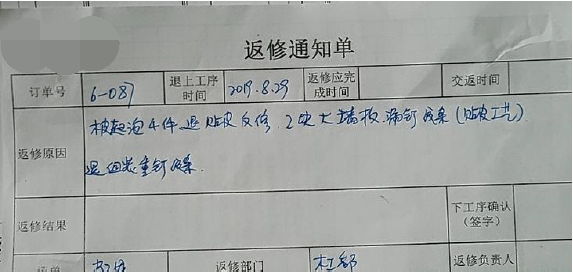 返修通知单
订单号 6-087 退上工序时间 2019.8.29 返修应完成时间 交返时间
返修原因 板起泡4件退贴皮返修,2块大墙板漏钉
退回 重钉
返修结果 下工序确认(签字)
返修部门 返修负责人